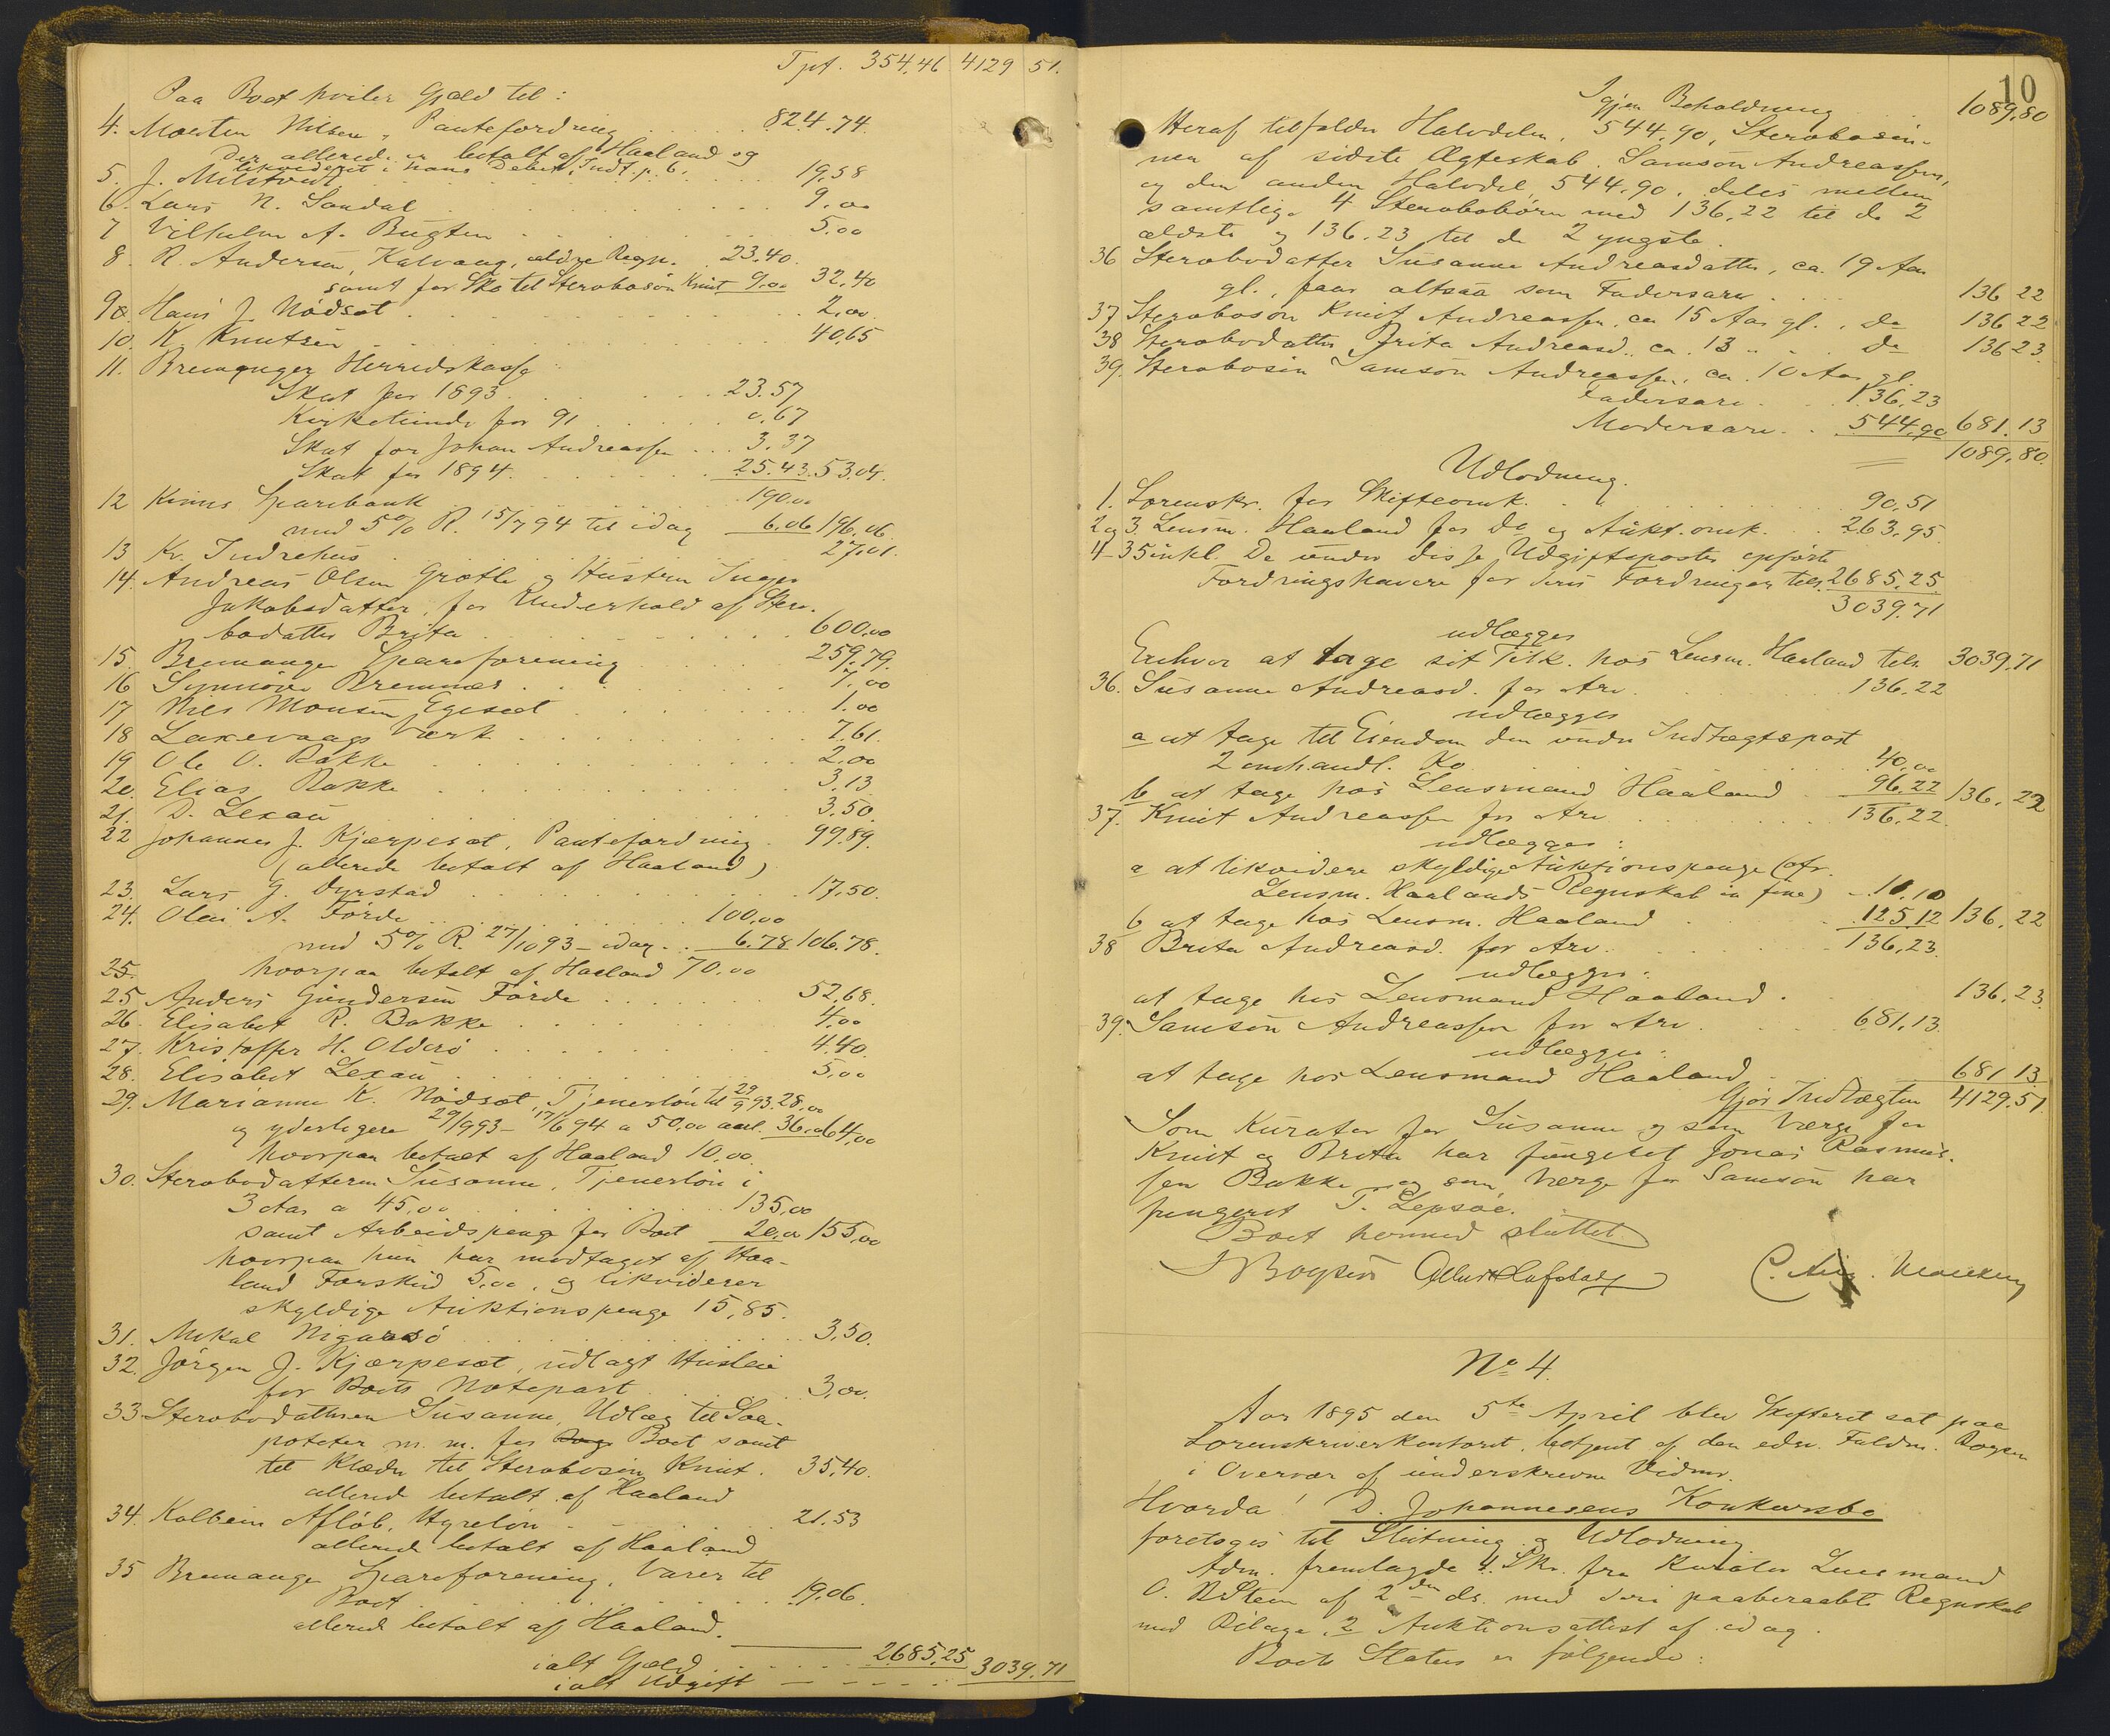 Tpt. 354,46 4129 51.
Paa Boet hviler Gjæld til:
4. Morten Nilsen, Pantefordring 824,74.
Der allerede er betalt af Haaland og
likvideret i hans Debet, Indt. p. 6.
5. J. Milstvedt 19,58
6. Lars N. Sandal 9,00
7 Vilhelm A. Bugten 5,00
8. R. Andersen, Kalvaag, ældre Regn. 23,40.
samt for Sko til Stervbosøn Knut 9,00 32,40
9. Hans J. Nødsæt 2,00
10. K. Knutsen 40,65
11. Bremanger Herredskasse
Skat for 1893 23,57
Kirketiende for 91 0,67
Skat for Johan Andreassen 3,37
Skat for 1894 25.43. 53,04.
12 Kinns Sparebank 190,00
med 5% R. 15/7 94 til idag 6,06 196,06.
13 Kr. Indrehus 27,01.
14. Andreas Olsen Grotle og Hustru Inger
Jakobsdatter, for Underhold af Sterv-
bodatter Brita 600,00
15. Bremanger Spareforening 259,79.
16 Synnøve Bremnes 7,00
17 Nils Monsen Egesæt 1,00
18 Laxevaags Værk 7,61.
19 Ole O. Bakke 2,00
20. Elias Bakke 3,13
21. D. Lexau 3,50.
22 Johannes J. Kjærpesæt, Pantefordring 99,89.
(allerede betalt af Haaland)
23. Lars G. Dyrstad 17,50.
24. Olai A. Førde 100,00
med 5% R. 27/10 93 - idag 6.78 106.78.
25. hvorpaa betalt af Haaland 70,00
25 Anders Gundersen Førde 52,68.
26. Elisabet R. Bakke 4,00
27. Kristoffer H. Olderø 4,40.
28. Elisabet Lexau 5,00
29. Marianne K. Nødsæt, Tjenerløn til 29/9 93. 28,00
og yderligere 29/9 93 - 17/6 94 a 50,00 aarl. 36,00 64,00
hvorpaa betalt af Haaland 10,00.
30. Stervbodatteren Susanne, Tjenerløn i
3 Aar a 45,00 135,00
samt Arbeidspenge for Boet 20,00 155,00
hvorpaa hun har modtaget af Haa-
land Forskud 5,00, og likviderer
skyldige Auktionspenge 15,85.
31. Mikal Nigardsø 3,50.
32. Jørgen J. Kjærpesæt, udlagt Husleie
for Boets Notepart 3,00.
33 Stervbodatteren Susanne, Udlæg til Saa-
poteter m. m. for Boet samt
til Klæder til Stervbosøn Knut. 35,40.
allerede betalt af Haaland
34. Kolbein Afløb, Hyreløn 21.53
allerede betalt af Haaland
35 Bremanger Spareforening, Varer til
Boet 19,06.
allerede betalt af Haaland.
ialt Gjæld 2685,25
ialt Udgift 3039.71
10
Igjen Beholdning 1089,80
Heraf tilfalder Halvdelen, 544,90, Stervbosøn-
nen af sidste Ægteskab, Samson Andreassen,
og den anden Halvdel, 544,90, deles mellem
samtlige 4 Stervbobørn med 136,22 til de 2
ældste og 136,23 til de 2 yngste.
36 Stervbodatter Susanne Andreasdatter, ca. 19 Aar
gl., faar altsaa som Fadersarv 136 22
37 Stervbosøn Knut Andreassen, ca 15 Aar gl., Do 136 22
38 Stervbodatter Brita Andreasd., ca. 13 " " Do 136 23.
39. Stervbosøn Samson Andreassen, ca. 10 Aar gl.
Fadersarv 136,23
Modersarv 544,90 681.13
1089,80.
Udlodning.
1. Sorenskr. for Skifteomk. 90,51
2 og 3 Lensm. Haaland for Do og Aukt.omk. 263,95.
4-35 inkl. De under disse Udgiftsposter opførte
Fordringshavere for deres Fordringer tils. 2685,25.
3039,71
udlægges
Enhver at tage sit Tilk. hos Lensm. Haaland tils 3039,71
36. Susanne Andreasd. for Arv 136,22
udlægges
a at tage til Eiendom den under Indtægtspost
2 omhandl. Ko 40,00
b at tage hos Lensmand Haaland 96,22 136,22
37. Knut Andreassen for Arv 136,22.
udlægges:
a at likvidere skyldige Auktionspenge (cfr.
Lensm. Haalands Regnskab in fine) 10,10
b at tage hos Lensm. Haaland 125,12 136,22
38 Brita Andreasd. for Arv 136,23.
udlægges:
at tage hos Lensmand Haaland. 136,23.
39. Samson Andreassen for Arv. 681,13.
udlægges:
at tage hos Lensmand Haaland 681 13.
Gjør Indtægten 4129,51.
Som Kurator for Susanne og som Værge for
Knut og Brita har fungeret Jonas Rasmus-
sen Bakke og som Værge for Samson har
fungeret T. Lepsøe.
Boet hermed sluttet
No 4.
Aar 1895 den 5te April blev Skifteret sat paa
Sorenskriverkontoret, betjent af den edsv. Fuldm. Boysen
i Overvær af underskrevne Vidner.
Hvorda! D. Johannesens Konkursbo
foretoges til Slutning og Udlodning
Adm. fremlagde 1. Skr. fra Kurator Lensmand
O. N Steen af 2den ds. med deri paaberaabte Regnskab
med Bilage, 2 Auktionsattest af idag.
Boets Status er følgende: